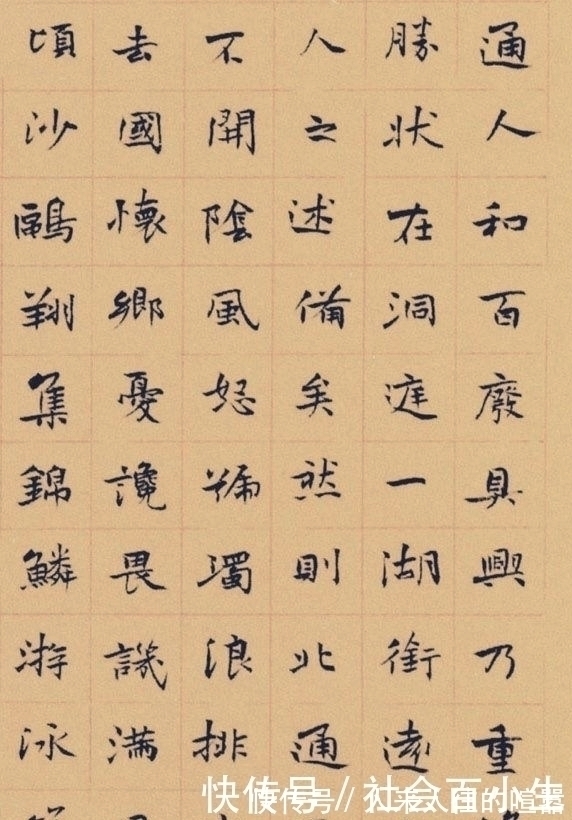 通人和百廢具興乃重
勝狀在洞庭一湖銜遠
人之述備矣然則北通
不開陰風怒號濁浪排
去國懷鄉憂讒畏譏滿
頃沙鷗翔集錦鱗游泳
快传号 // 社会百小生
快传号 // 人来人往的喧嚣